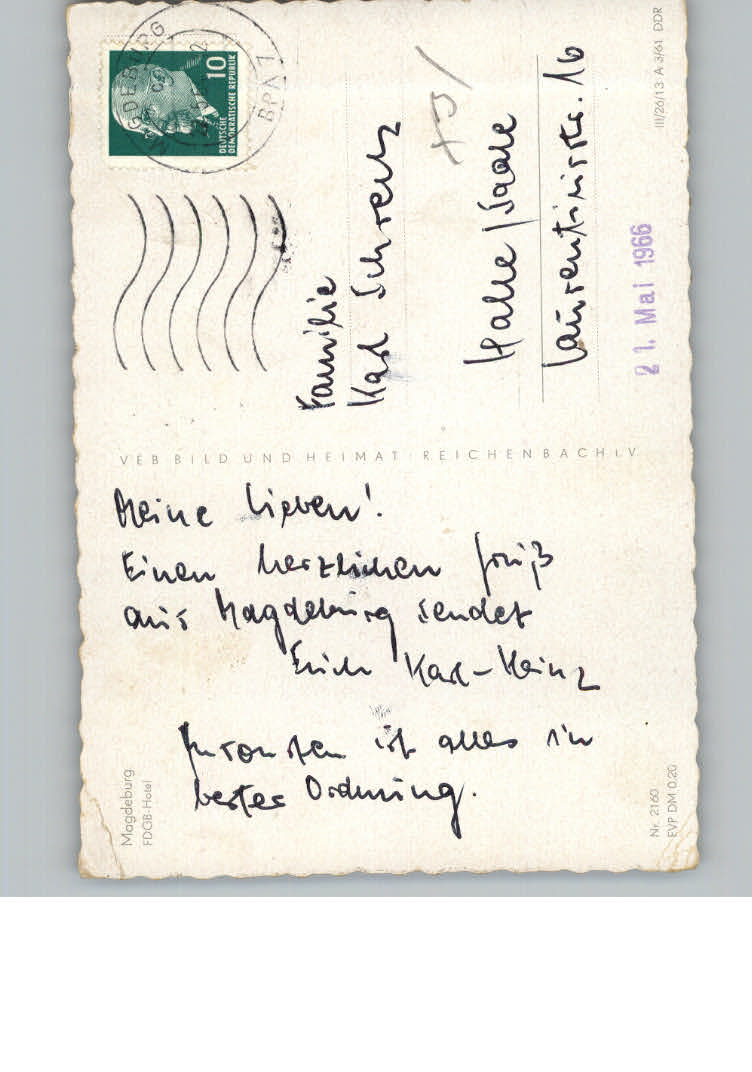 Meine Lieben!
Einen herzlichen Gruß
aus Magdeburg sendet
Euch Karl-Heinz
Ansonsten ist alles in
bester Ordnung.
Magdeburg
FDGB-Hotel
VEB BILD UND HEIMAT REICHENBACH i.V
Nr. 2160
EVP DM 0.20
MAGDEBURG
BPA 1
10
DEUTSCHE
DEMOKRATISCHE REPUBLIK
Familie
Karl
Halle/Saale
Laurentiusstr. 16
21. Mai 1966
III/26/13 A 3/61 DDR